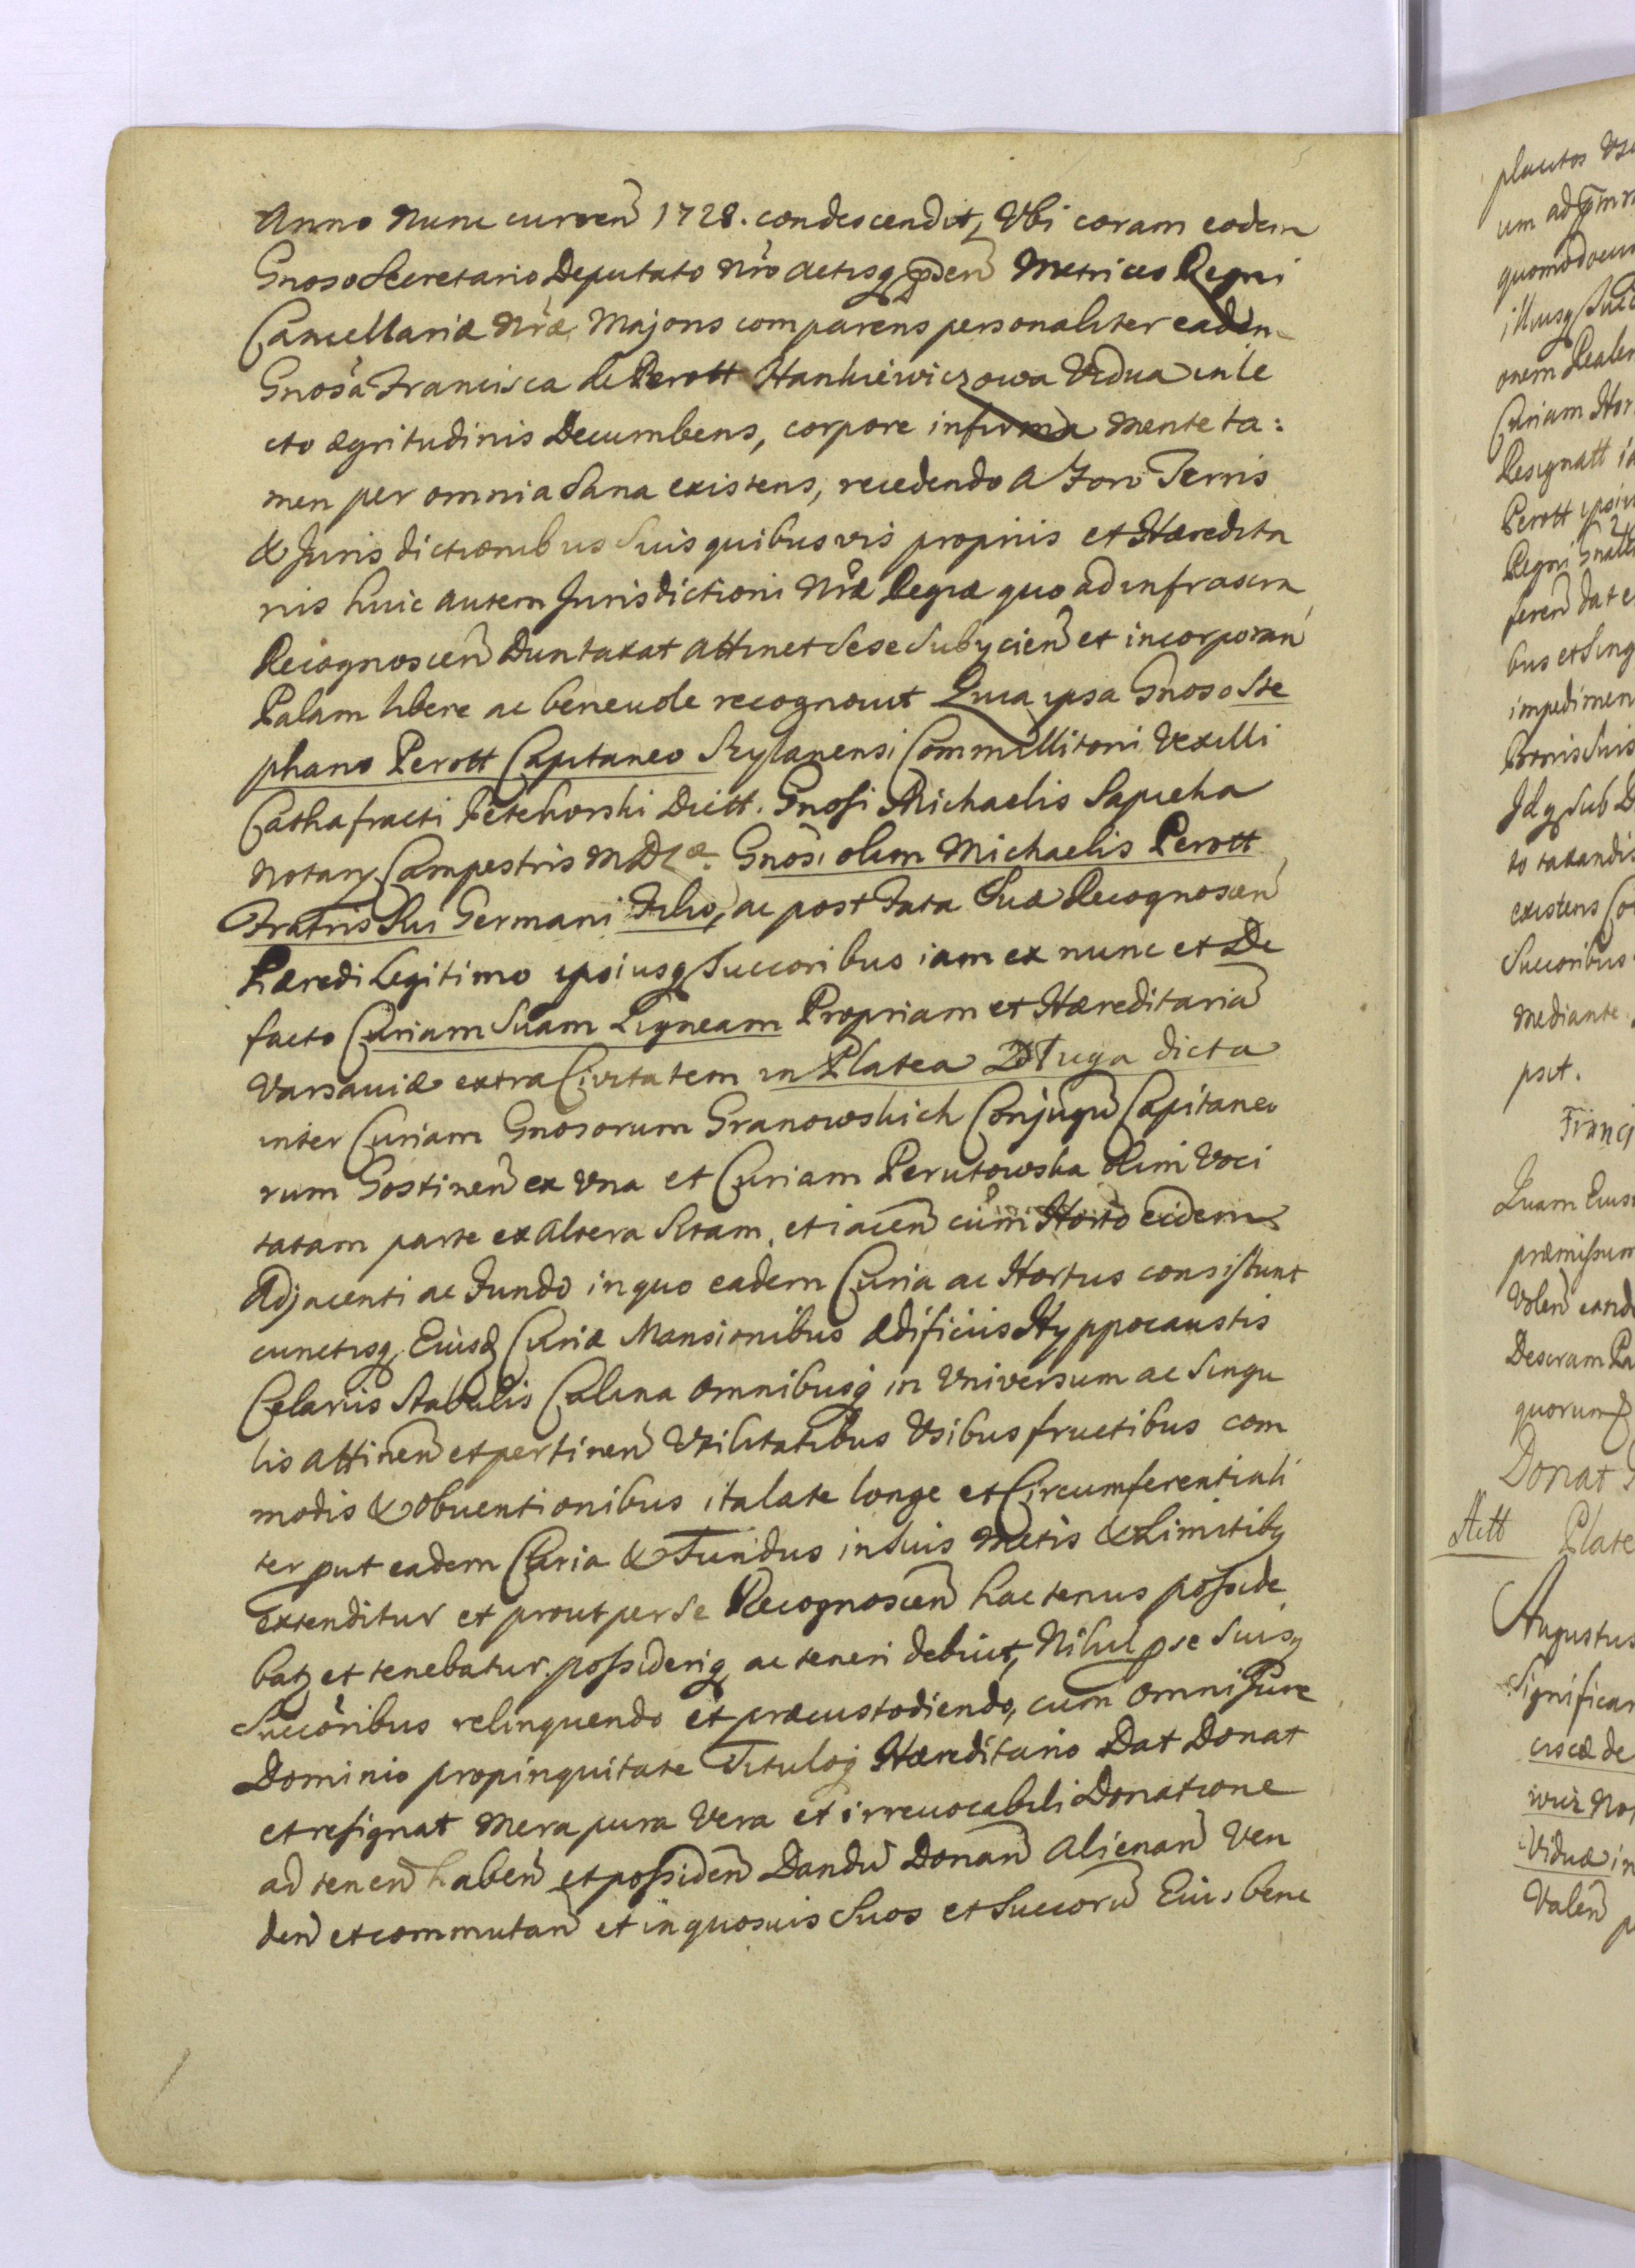 Anno Nunc curren̄ 1728. condescendit, Vbi coram eodem
Gnoso Secretario Deputato Nr̄o actisq p̄sen̄ Metrices Regni
Cancellariæ Nr̄æ Majoris comparens personaliter eadem
Gnosa Francisca de Perott Hankiewiczowa Vidua in le
cto ægritudinis Decumbens, corpore infirma mente ta:
men per omnia Sana existens, recedendo a Foro Terris
& Jurisdictionibus Suis quibusvis propriis et Hæredita
riis huic autem Jurisdictioni Nr̄æ Regiæ quo ad infrascrn
Recognoscen̄ Duntaxat attinet Sese Subycien̄ et incorporan̄
Palam libere ac beneuole recognouit Quia ipsa Gnoso Ste
phano Perott Capitaneo Szylanensi Commillitoni Vexilli
Cathafracti Petehorski Dictt. Gnosi Michaelis Sapieha
Notary Campestris MDLæ. Gnosi olim Michaelis Perott
Fratris Sui Germani Filio, ac post Fata Sua Recognoscen̄
Hæredi Legitimo ipsiusq Succoribus iam ex nunc et De
facto Curiam Suam Ligneam Propriam et Hæreditariā
Varsaviæ extra Civitatem in Platea Długa dicta
inter Curiam Gnosorum Granowskich Conjugū Capitaneo
rum Gostinen̄ ex Vna et Curiam Perutowska olim Voci
tatam parte ex Altera Sitam, et iacen̄ cum Horto eidem
Adjacenti ac Fundo in quo eadem Curia ac Hortus consistunt
cunctisq Eiusd Curiæ Mansionibus Ædificiis Hyppocaustis
Celariis Stabulis Culina omnibusq in Vniversum ac Singu
lis attinen̄ et pertinen̄ Vtilitatibus Vsibus fructibus com
modis & obuentionibus ita late longe et Circumferentiali
ter put eadem Curia & Fundus in Suis Metis & Limitibq
extenditur et prout per Se Recognoscen̄ hactenus posside
batq et tenebatur possiderig ac teneri debuit, Nihil p se Suisq
Succoribus relinquendo et præcustodiendo, cum omni Jure
Dominio propinquitate Tituloq Hæreditario Dat Donat
et resignat Mera pura Vera et irreuocabili Donatione
ad tenen̄ haben̄ et possiden̄ Dandū Donan̄ Alienan̄ Ven
den̄ et commutan̄ et in quosuis Suos et Succorū Eius bene
plautos
um ad
quomodocun
illiusq
onem Realem
Curiam Hor
Resignatt
Perott ipsius
Regni
feren̄ dat
bus et Sing
impedimen
Bonis Suis
Idq Sub
to taxandis
existens
Succoribus
Mediante
psit.
Franci
Quam Eius
præmissum
Volen̄
quorum
Donat
Actt Plate
Augustus
Significa
de
Viduæ in
Valen̄